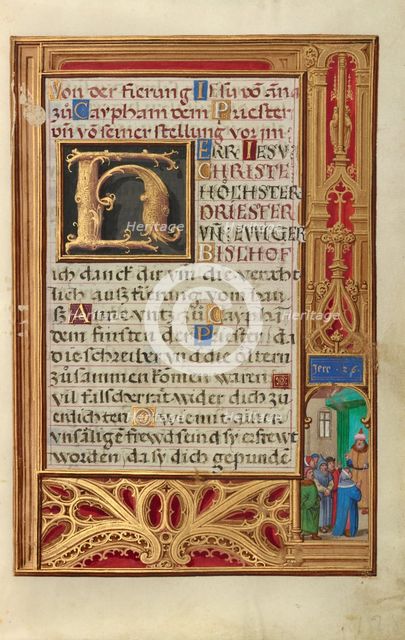 Von der fierung Iesu võ Añа
zů Caypham dem Priester
vñ võ seiner stellung vor im
HERR IESV
CHRISTE
HÖCHSTER
PRIESTER
VÑ EWIGER
BISCHOF
ich danck dir vm die veracht
lich ausz fierung vom hau
sz Anne vntz zů Caypham
dem fürsten der Priester, da
die schreiber vnd die öltern
zůsammen komen waren
vil falscher rät wider dich zů
endichten Die mit grosser
vnsälige frewd seind sy erfrewt
worden, da sy dich gepunden
Jere · 26 ·
Heritage